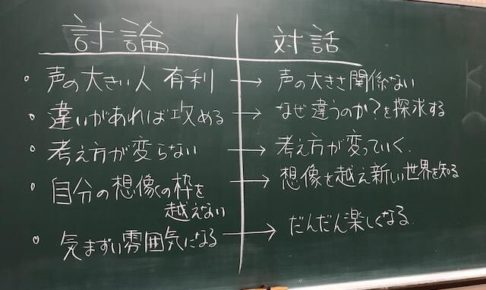 討論 対話
・声の大きい人 有利 → 声の大きさ関係ない
・違いがあれば攻める → なぜ違うのか?を探求する
・考え方が変らない → 考え方が変っていく.
・自分の想像の枠を → 想像を越え新しい世界を知る
越えない
・気まずい雰囲気になる → だんだん楽しくなる